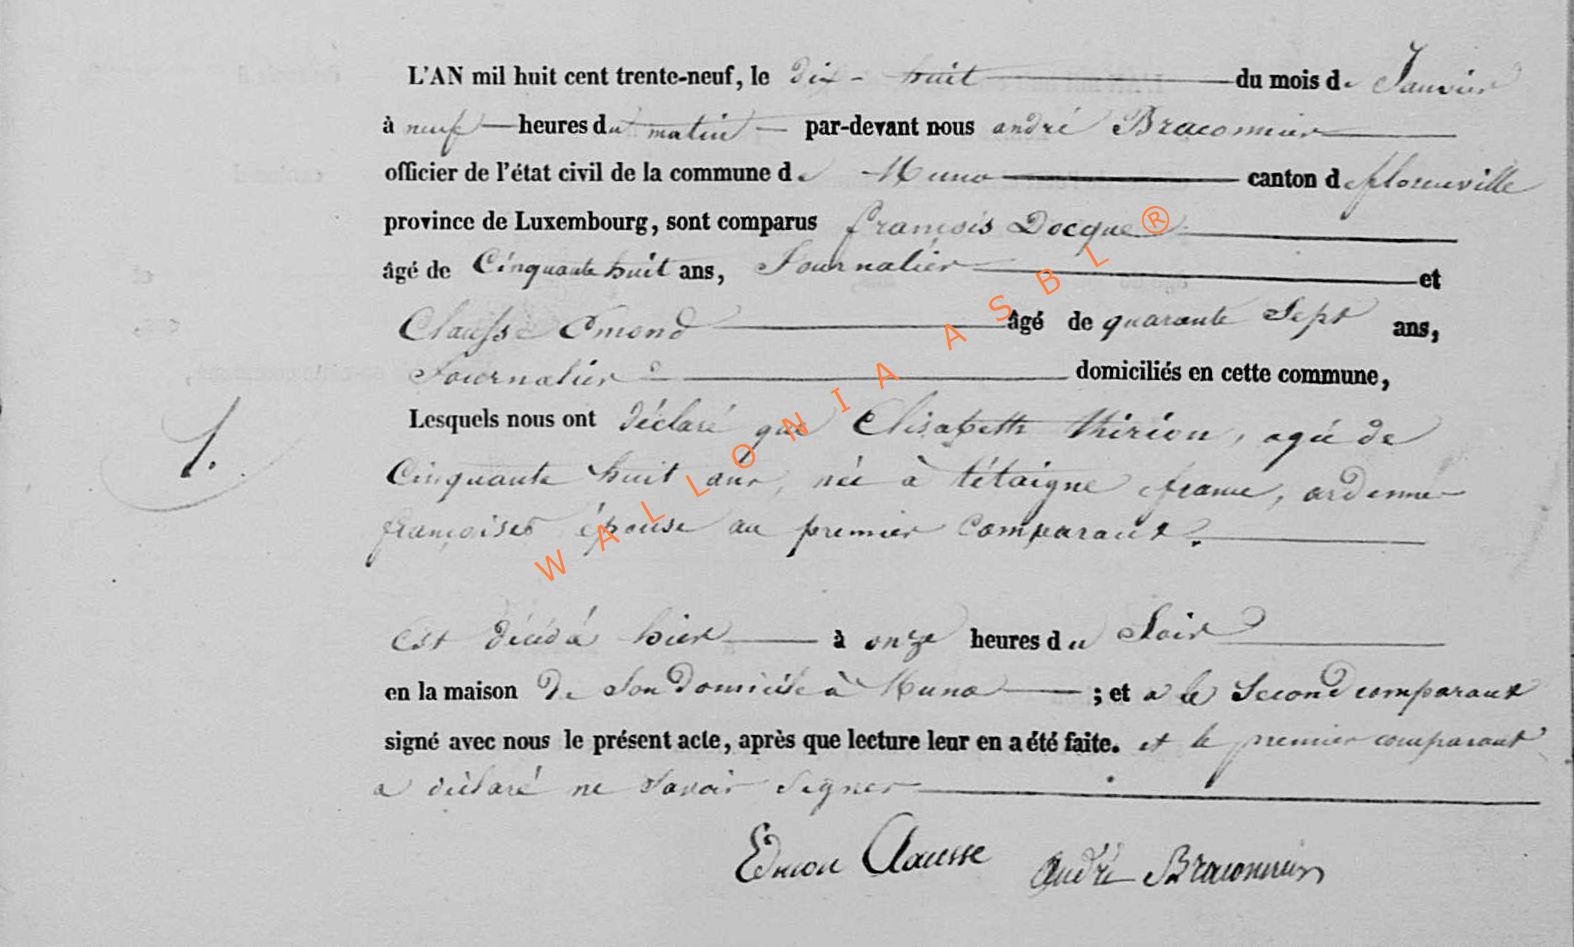 L'AN mil huit cent trente-neuf, le dix-huit du mois de Janvier
à neuf heures du matin par-devant nous andré Braconnier
officier de l'état civil de la commune de Muno canton de florenville
province de Luxembourg, sont comparus françois Docque
âgé de Cinquante huit ans, Journalier et
Clausse Emond âgé de quarante Sept ans,
Journalier domiciliés en cette commune,
1.
Lesquels nous ont déclaré que Elisabeth thirion, agée de
Cinquante huit ans, née à tétaigne france, ardenne
françoises épouse au premier Comparant.
Est décédé hier à onze heures du Soir
en la maison de Son domicile à Muno ; et a le Second comparant
signé avec nous le présent acte, après que lecture leur en a été faite. et le premier comparant
a déclaré ne Savoir Signer
Edmon Clausse andré Braconnier
WALLONIA ASBL ®